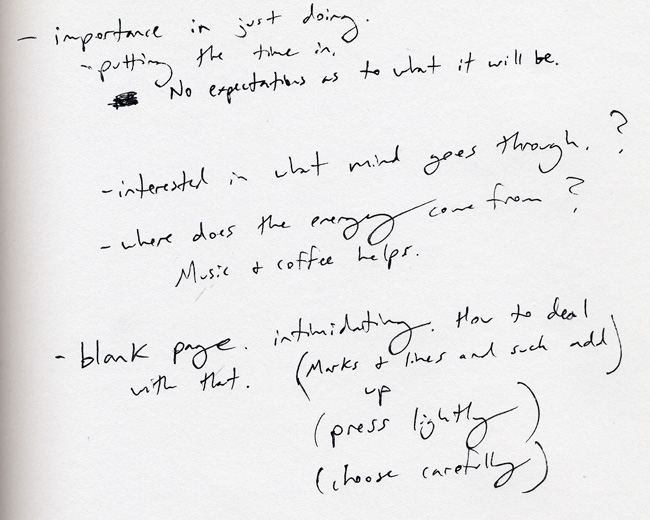 - importance in just doing.
- putting the time in.
No expectations as to what it will be.
- interested in what mind goes through. ?
- where does the energy come from ?
Music & coffee helps.
- blank page. intimidating. How to deal
with that. (Marks & lines and such add
up)
(press lightly)
(choose carefully)